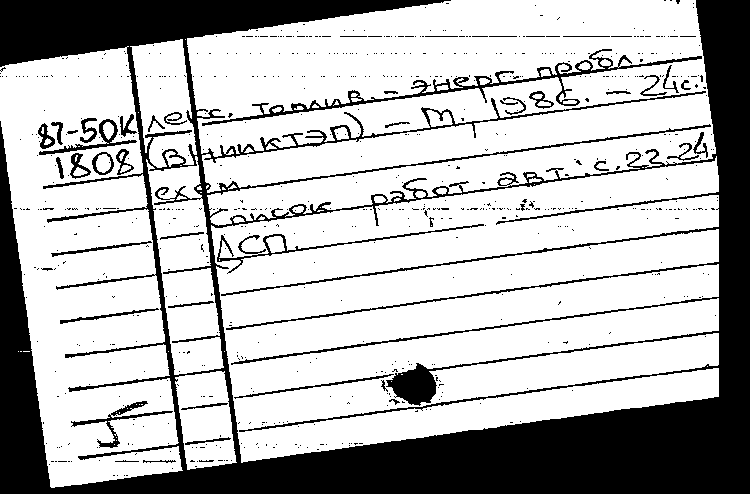 87-50К лекс. топлив.- энерг. пробл.
1808 (ВНИИКТЭП). - М., 1986. - 24с.:
схем.
Список работ авт.: с. 22-24.
ДСП.
5